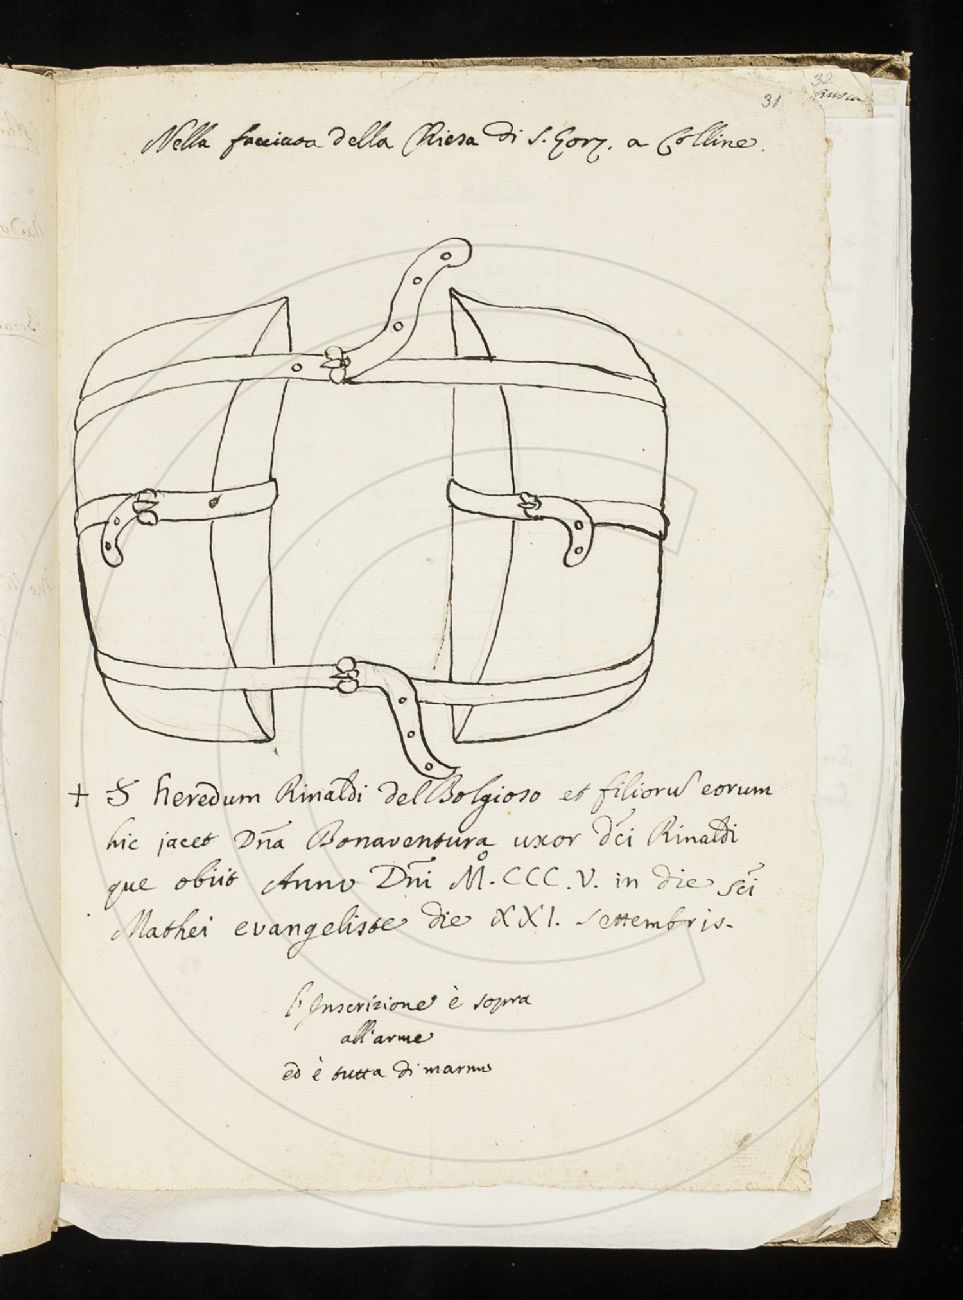 32
31
Nella facciata della Chiesa di S. Gorg. a Colline.
+ S heredum Rinaldi del Bolgioso et filioru eorum
hic jacet Dña Bonaventura uxor dc̃i Rinaldi
que obiit Anno Dñi Mº. CCC.V. in die sc̃i
Mathei evangeliste die XXI. Settembris.
l'Inscrizione è sopra
all'arme
ed è tutta di marmo